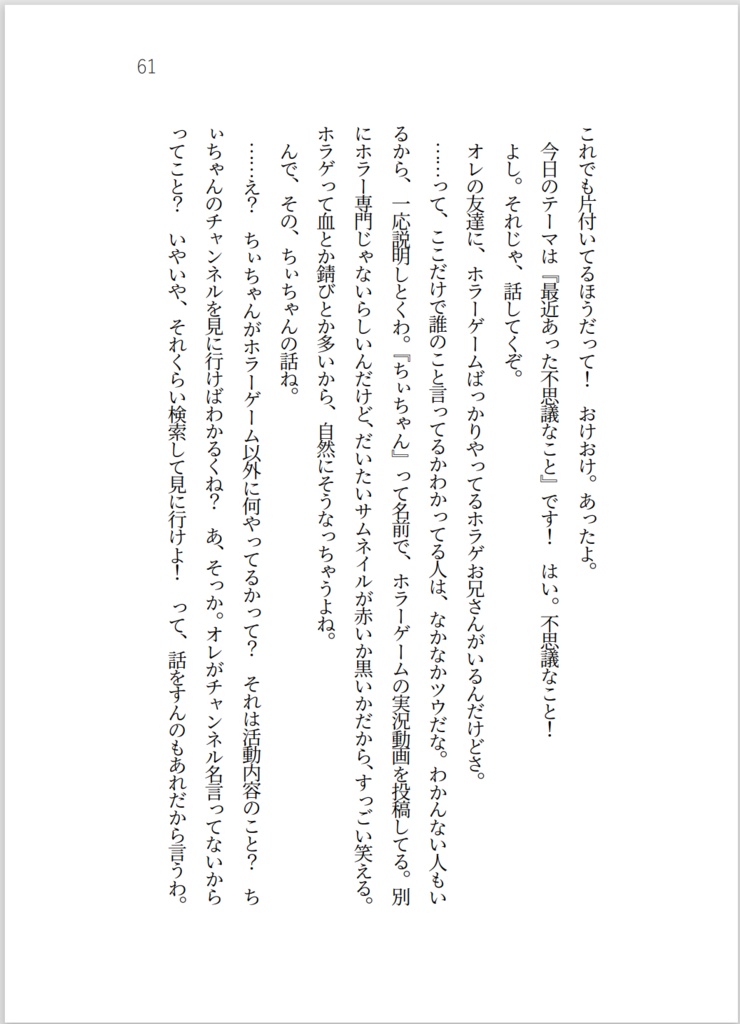 61
これでも片付いてるほうだって！　おけおけ。あったよ。
今日のテーマは『最近あった不思議なこと』です！　はい。不思議なこと！
よし。それじゃ、話してくぞ。
オレの友達に、ホラーゲームばっかりやってるホラゲお兄さんがいるんだけどさ。
……って、ここだけで誰のこと言ってるかわかってる人は、なかなかツウだな。わかんない人もい
るから、一応説明しとくわ。『ちぃちゃん』って名前で、ホラーゲームの実況動画を投稿してる。別
にホラー専門じゃないらしいんだけど、だいたいサムネイルが赤いか黒いかだから、すっごい笑える。
ホラゲって血とか錆びとか多いから、自然にそうなっちゃうよね。
んで、その、ちぃちゃんの話ね。
……え？　ちぃちゃんがホラーゲーム以外に何やってるかって？　それは活動内容のこと？　ち
ぃちゃんのチャンネルを見に行けばわかるくね？　あ、そっか。オレがチャンネル名言ってないから
ってこと？　いやいや、それくらい検索して見に行けよ！　って、話をすんのもあれだから言うわ。